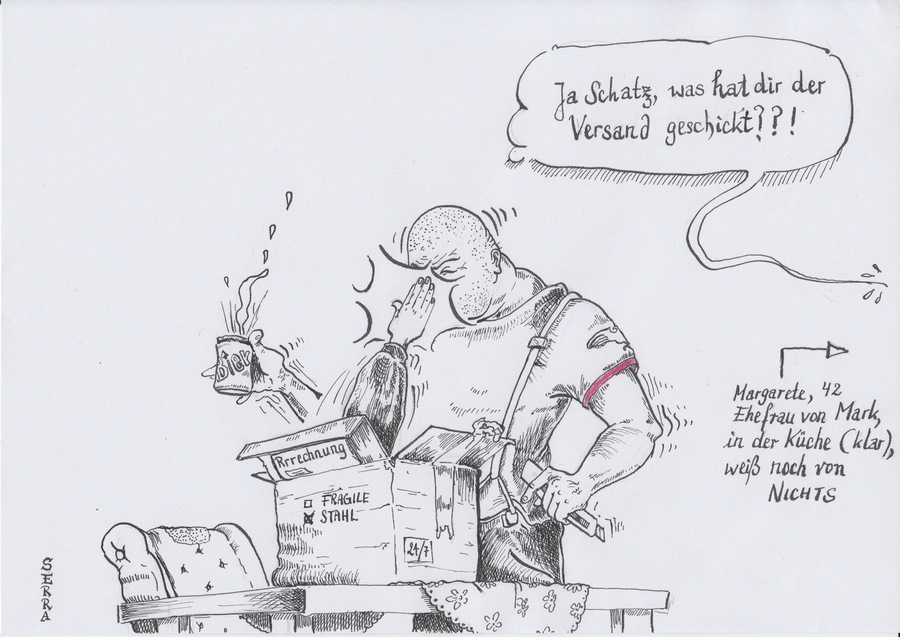 Ja Schatz, was hat dir der
Versand geschickt???!
Margarete, 42
Ehefrau von Mark,
in der Küche (klar),
weiß noch von
NICHTS
BIER
Rrrechnung
FRAGILE
STAHL
24/7
SERRA